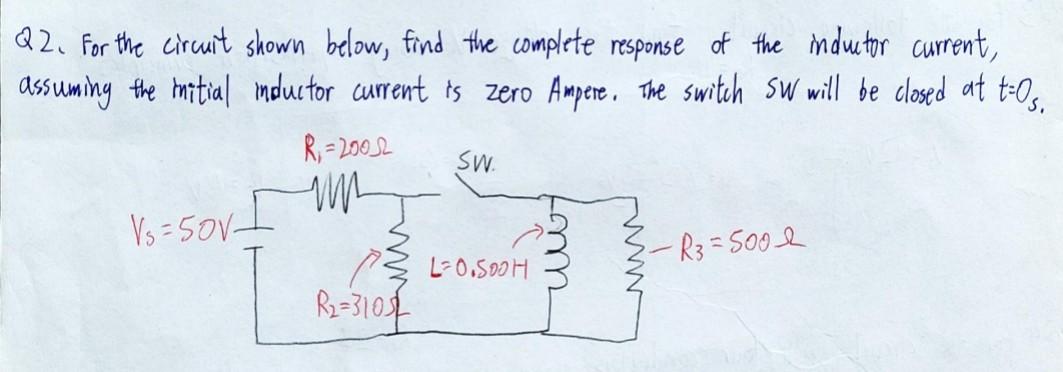 Q2. For the circuit shown below, find the complete response of the inductor current,
assuming the initial inductor current is zero Ampere. The switch SW will be closed at t=0s.
R₁=200Ω
SW.
Vs=50V
R3=500Ω
L=0.500H
R2=310Ω